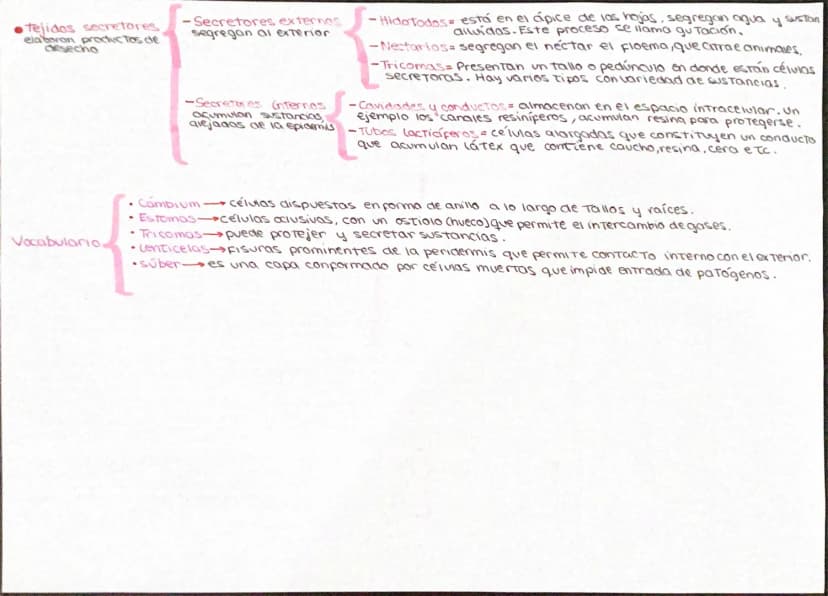 • Tejidos secretores
elaboran productos de
desecho
- Secretores externos
segregan al exterior
- Hidatodos= está en el ápice de las hojas, segregan agua y sustan
diluidas. Este proceso se llama gutación.
- Nectarios= segregan el néctar el floema, que atrae animales.
- Tricomas= Presentan un tallo o pedúnculo en donde están células
secretoras. Hay varios tipos con variedad de sustancias.
- Secretores internos
acumulan sustancias
alejados de la epidermis
- Cavidades y conductos= almacenan en el espacio intracelular. Un
ejemplo los canales resiníferos, acumulan resina para protegerse.
- Tubos lactíciferos= células alargadas que constituyen un conducto
que acumulan látex que contiene caucho, resina, cera etc.
Vocabulario
• Cámbium → células dispuestas en forma de anillo a lo largo de tallos y raíces.
• Estomas → células oclusivas, con un ostiolo (hueco) que permite el intercambio de gases.
• Tricomas → puede protejer y secretar sustancias.
• Lenticelas → Fisuras prominentes de la peridermis que permite contacto interno con el exterior.
• Súber → es una capa conformado por células muertas que impide entrada de patógenos.